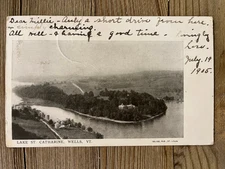 Dear Millie - Only a short drive from here.
charming.
All well - & having a good time. Lovingly
Lou.
July 19
1905.
LAKE ST. CATHARINE, WELLS, VT.